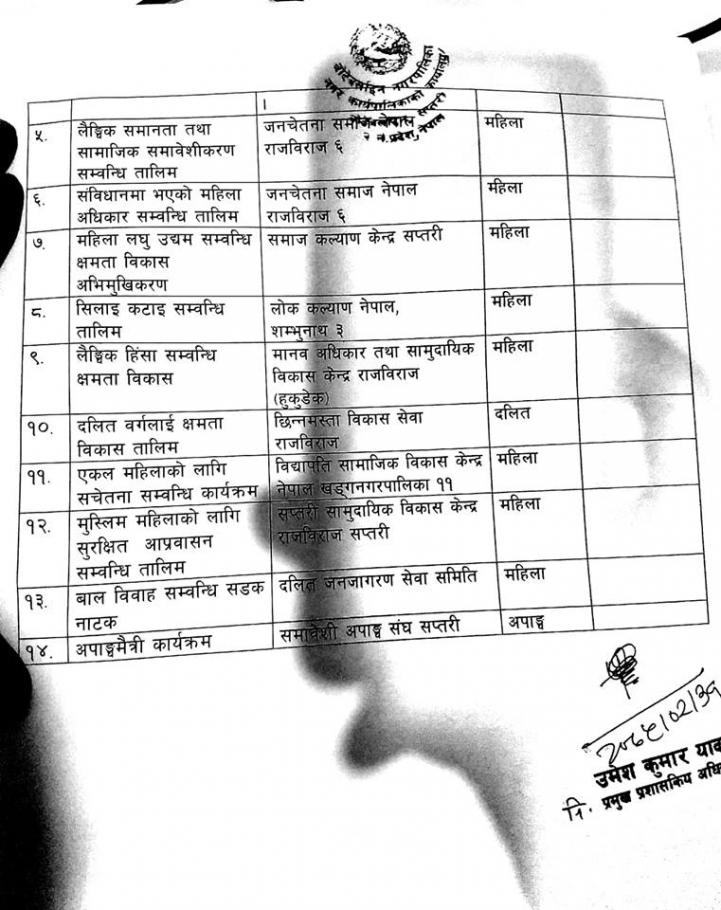 बोदेबरसाइन नगरपालिका
नगर कार्यपालिकाको कार्यालय
सप्तरी
२ नं. प्रदेश, नेपाल
५. लैङ्गिक समानता तथा सामाजिक समावेशीकरण सम्वन्धि तालिम जनचेतना समाज नेपाल राजविराज ६ महिला
६. संविधानमा भएको महिला अधिकार सम्वन्धि तालिम जनचेतना समाज नेपाल राजविराज ६ महिला
७. महिला लघु उद्यम सम्वन्धि क्षमता विकास अभिमुखिकरण समाज कल्याण केन्द्र सप्तरी महिला
८. सिलाइ कटाइ सम्वन्धि तालिम लोक कल्याण नेपाल, शम्भुनाथ ३ महिला
९. लैङ्गिक हिंसा सम्वन्धि क्षमता विकास मानव अधिकार तथा सामुदायिक विकास केन्द्र राजविराज (हुकुडेक) महिला
१०. दलित वर्गलाई क्षमता विकास तालिम छिन्नमस्ता विकास सेवा राजविराज दलित
११. एकल महिलाको लागि सचेतना सम्वन्धि कार्यक्रम विद्यापति सामाजिक विकास केन्द्र नेपाल खड्गनगरपालिका ११ महिला
१२. मुस्लिम महिलाको लागि सुरक्षित आप्रवासन सम्वन्धि तालिम सप्तरी सामुदायिक विकास केन्द्र राजविराज सप्तरी महिला
१३. बाल विवाह सम्वन्धि सडक नाटक दलित जनजागरण सेवा समिति महिला
१४. अपाङ्गमैत्री कार्यक्रम समावेशी अपाङ्ग संघ सप्तरी अपाङ्ग
उमेश कुमार
नि. प्रमुख प्रशासकिय